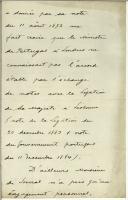 a donnée par sa note
du 11 août 1883 me
fait croire que le ministre
de Portugal à Londres ne
connaissait pas l'accord
établi par l'échange
de notes avec la Légation
de Sa Majesté à Lisbonne
(note de la Légation du
20 décembre 1883 & note
du Gouvernement portugais
du 11 décembre 1884).
D'ailleurs Monsieur
de Soveral n'a pas
engagement personnel,